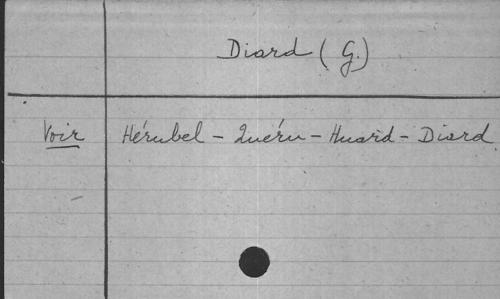 Diard (G.)
Voir Hérubel - Quéru - Huard - Diard